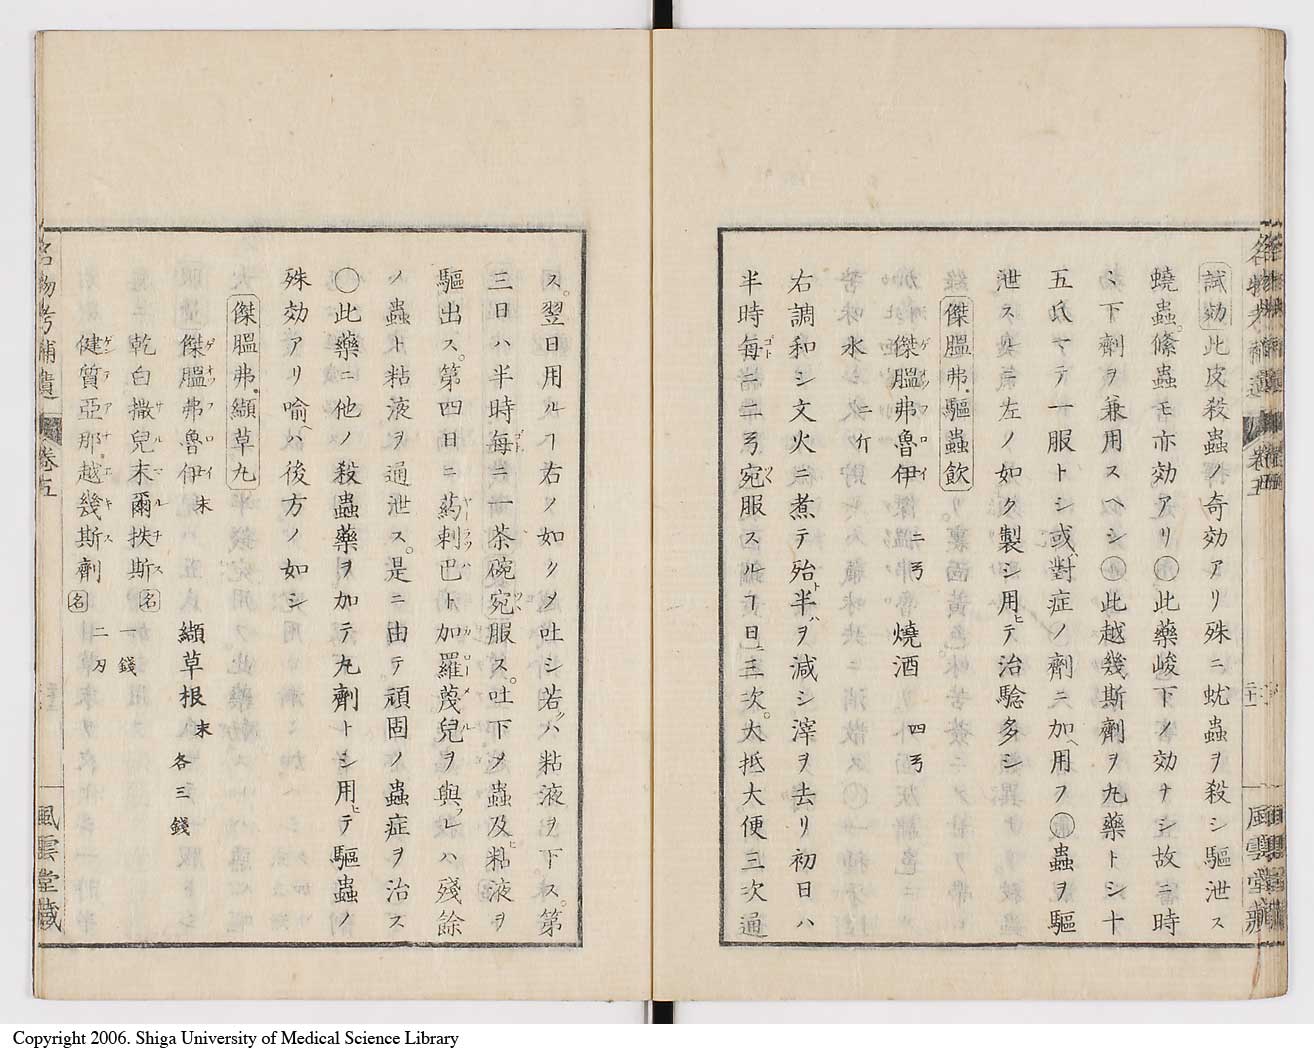 試効此皮殺蟲ノ奇効アリ殊ニ蚘蟲ヲ殺シ驅泄ス
蟯蟲。絛蟲モ亦効アリ○此藥峻下ノ効ナシ故ニ時
々下劑ヲ兼用スヘシ○此越幾斯劑ヲ丸藥トシ十
五氏ヲ一服トシ或ハ對症ノ劑ニ加ヘ用フ○蟲ヲ驅
泄スルニ左ノ如ク製シ用ヒテ治驗多シ
傑膃弗驅蟲飲
傑膃弗魯伊 二弓 燒酒 四弓
苦味水 二斤
右調和シ文火ニ煮テ殆ト半ハヲ減シ滓ヲ去リ初日ハ
半時毎ニ二弓宛服スルヿ日ニ三次。大抵大便三次通
ス。翌日用ルヿ右ノ如クメ吐シ若クハ粘液ヲ下ス。第
三日ハ半時毎ニ一茶碗宛服ス。吐下メ蟲及ヒ粘液ヲ
驅出ス。第四日ニ葯剌巴ト加羅蔑兒ヲ與フレハ殘餘
ノ蟲ト粘液ヲ通泄ス。是ニ由テ頑固ノ蟲症ヲ治ス
○此藥ニ他ノ殺蟲藥ヲ加テ丸劑トシ用ヒテ驅蟲ノ
殊効アリ喻ヘハ後方ノ如シ
傑膃弗纈草丸
傑膃弗魯伊末 纈草根末 各三錢
乾白撒兒末爾扶斯 名 一錢
健質亞那越幾斯劑 名 二刃
名物考補遺 卷五
風雲堂藏
Copyright 2006. Shiga University of Medical Science Library